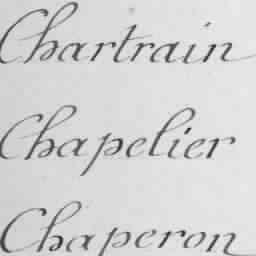 Chartrain
Chapelier
Chaperon